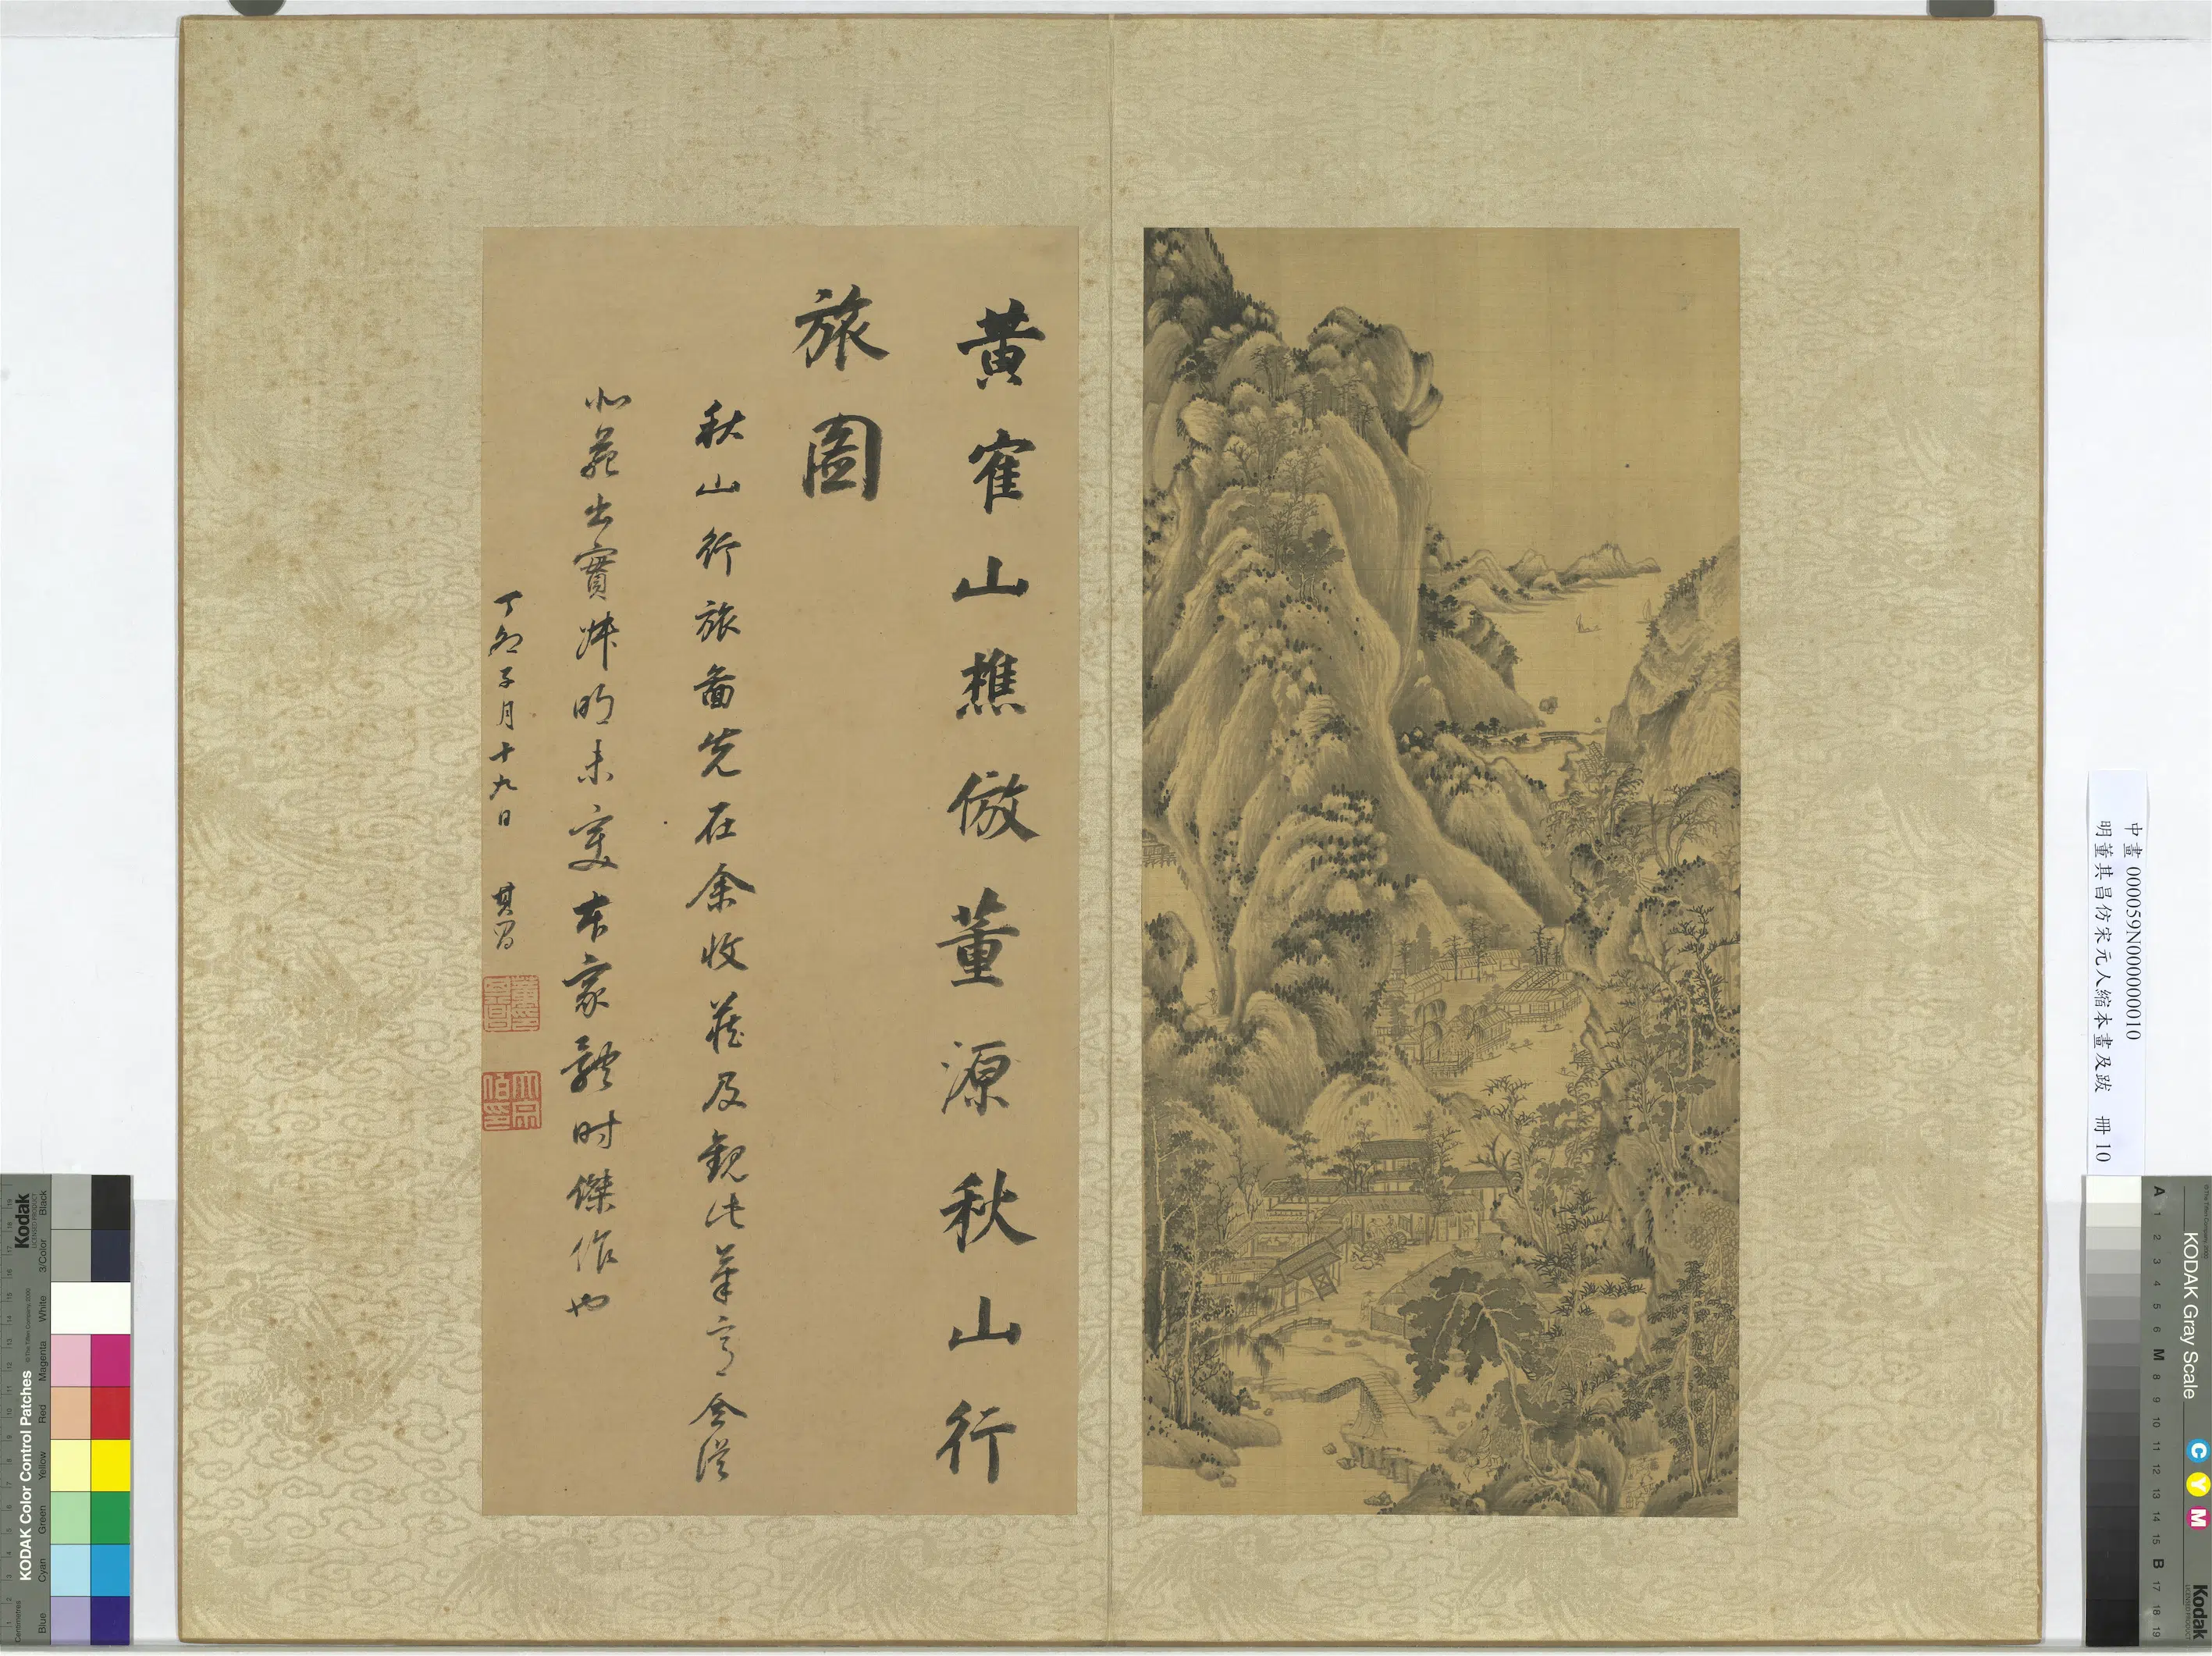 黃隺山樵倣董源秋山行
旅圖
秋山行旅圖先在余收藏及觀此筆亨全從
北苑出實
時明未變本家體時傑作也
丁卯子月十九日 其昌
中畫 000059N000000010
明董其昌仿宋元人縮本畫及跋 冊 10
Kodak
LICENSED PRODUCT
KODAK Color Control Patches
© The Tiffen Company, 2000
Centimetres
Blue
Cyan
Green
Yellow
Red
Magenta
White
3/Color
Black
KODAK Gray Scale
C
Y
M
Kodak
LICENSED PRODUCT
A 1 2 3 4 5 6 M 8 9 10 11 12 13 14 15 B 17 18 19